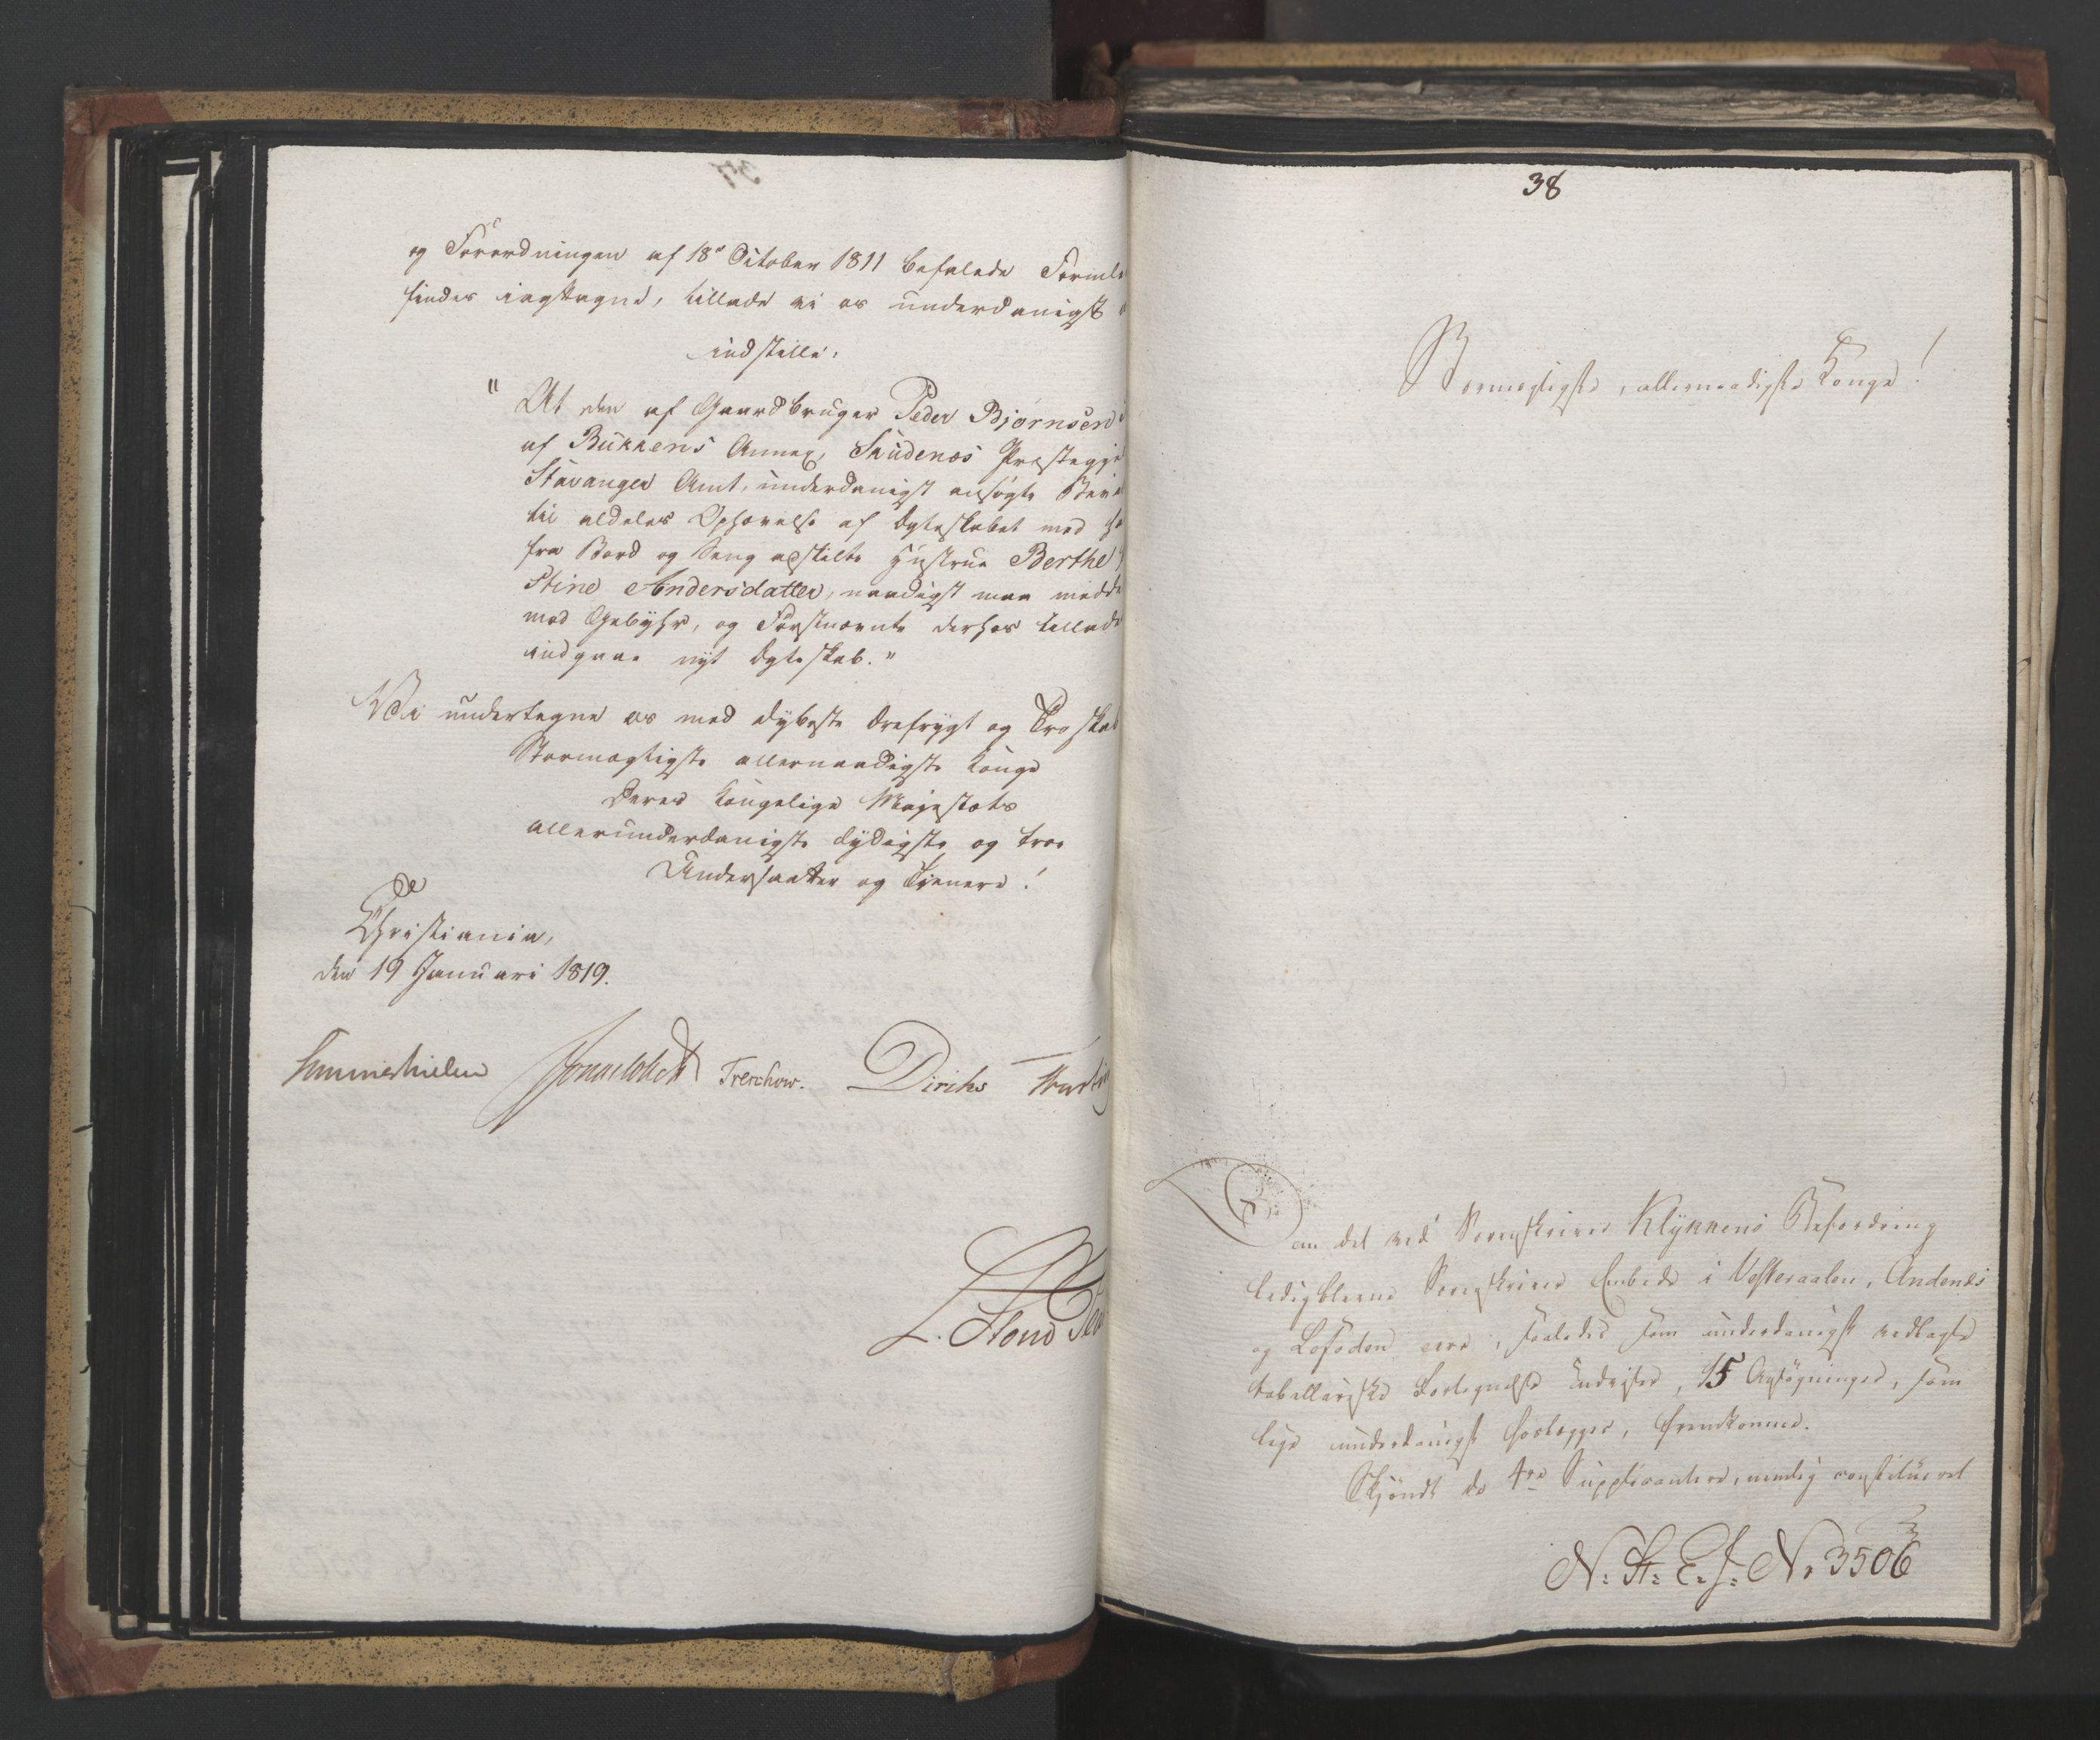 og Forordningen af 18de October 1811 befalede Formle
findes iagttagne, tillade vi os underdanigst
indstille:
"At den af Gaardbruger Peder Bjørnsen
af Bukkens Annex, Skudenes Præstegje
Stavanger Amt, underdanigst ansøgte Bevi
til aldeles Ophævelse af Ægteskabet med
fra Bord og Seng adskilte Hustrue Berthe
Stine Andersdatter, naadigst maa medde
mod Gebyhr, og Førstnævnte derhos tillade
indgaae nyt Ægteskab."
Vi undertegne os med dybeste Ærefrygt og Troskab
Stormægtigste allernaadigste Konge
Deres Kongelige Majestæts
allerunderdanigste lydigste og troe
Undersaatter og Tjenere!
Christiania,
den 19 Januari 1819.
Sommerhielm Treschow. Diriks
L. Stoud
38
Stormægtigste, allernaadigste Konge!
Til det ved Sorenskriver Klykkens Befordring
ledigblevne Sorenskriver Embede i Vesteraalen, Andenes
og Lofoden ere, saaledes som underdanigst vedlagte
tabellariske Fortegnelse udviser, 15 Ansøgninger, som
lige underdanigst forlægges, fremkomne.
Skjøndt de Supplicantere, nemlig constitueret
N: St: E: J: No 3506